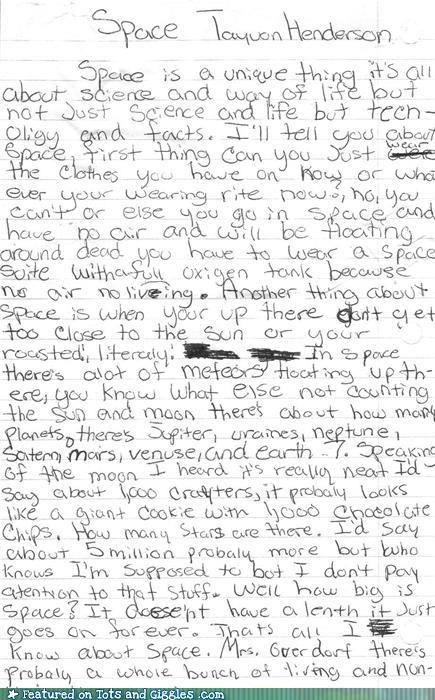 Space Tayvon Henderson
Space is a unique thing it's all
about science and way of life but
not just science and life but tech-
oligy and facts. I'll tell you about
Space, first thing can you just wear
the clothes you have on now or what
ever your wearing rite now?, no, you
can't or else you go in space and
have no air and will be floating
around dead you have to wear a space
suite with a full oxigen tank because
no air no liveing. Another thing about
space is when your up there don't get
too close to the sun or your
roasted, literaly! In space
there's alot of meteors floating up th-
ere, you know what else not counting
the sun and moon there's about how many
planets, there's Jupiter, uraines, neptune,
Satern, mars, venuse, and earth 7. Speaking
of the moon I heard it's really neat I'd
say about 1,000 crafters, it probaly looks
like a giant cookie with 1,000 chocolate
chips. How many stars are there. I'd say
about 5 million probaly more but who
knows I'm supposed to but I don't pay
atention to that stuff. Well how big is
space? It doesn't have a lenth it just
goes on for ever. Thats all I
know about space. Mrs. Overdorf there's
probaly a whole bunch of living and non-
Featured on Tots and Giggles .com